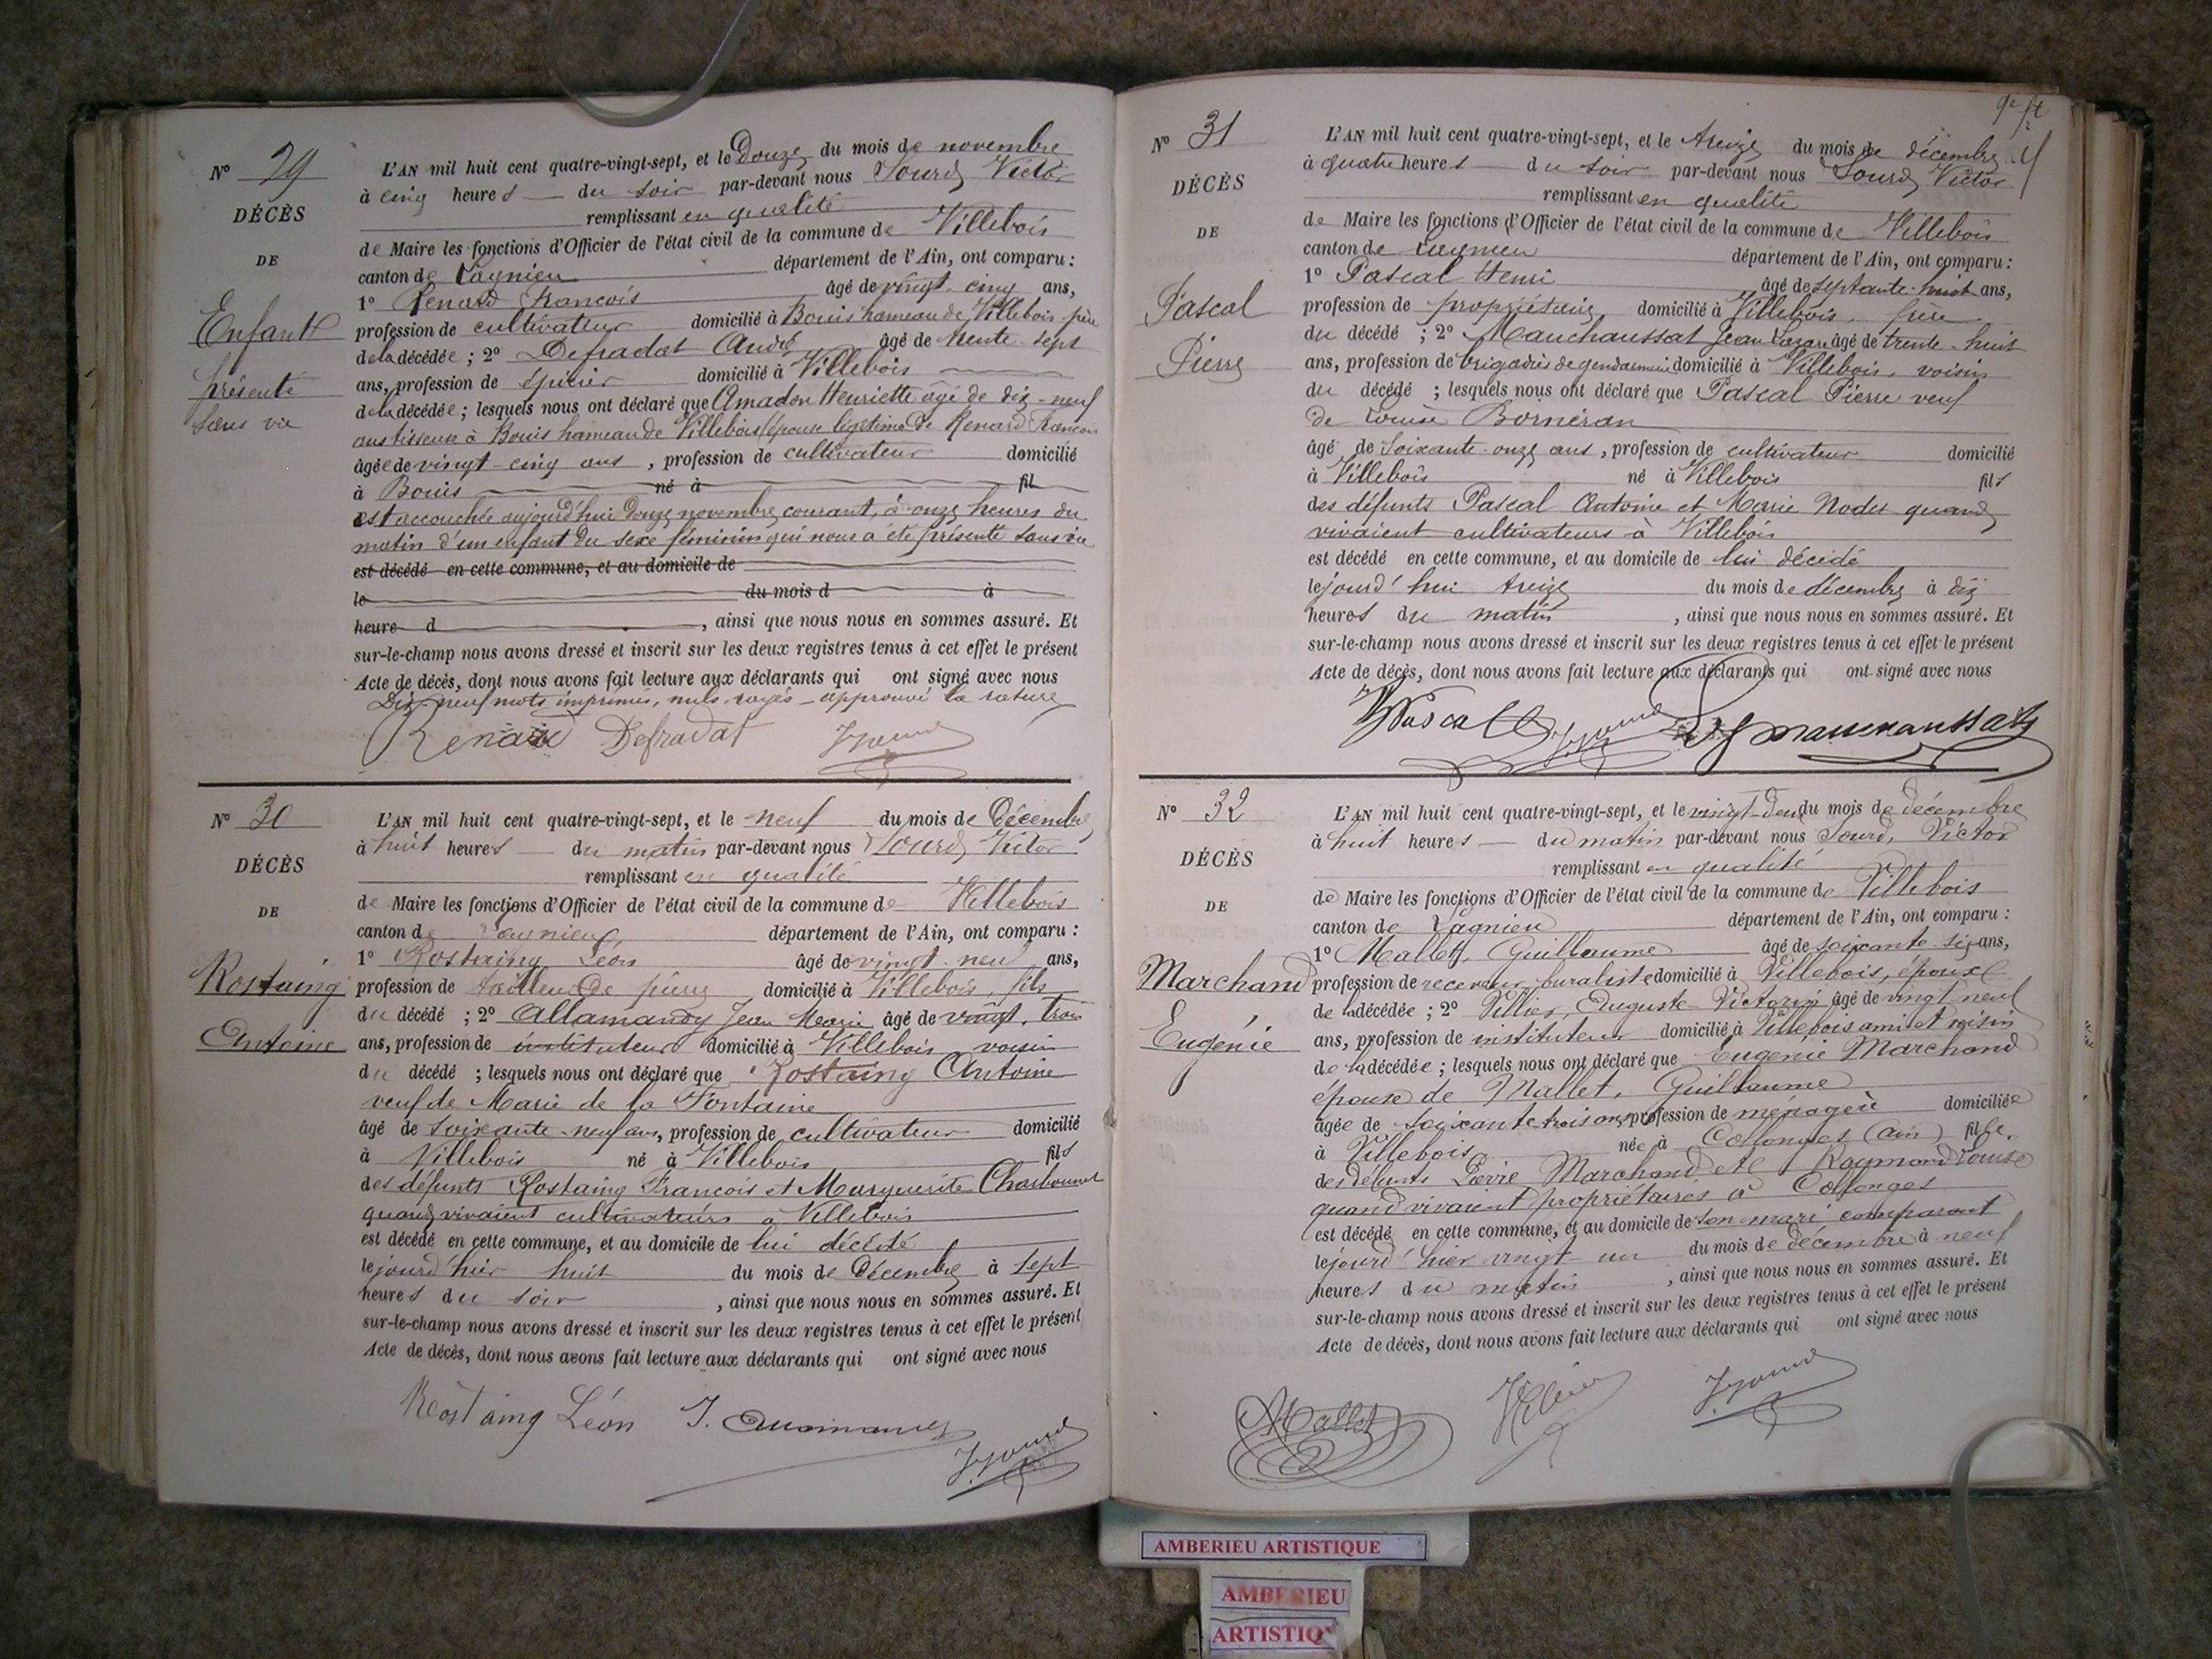 N° 29
DÉCÈS
DE
Enfant
présenté
sans vie
L'AN mil huit cent quatre-vingt-sept, et le Douze du mois de novembre
à cinq heures du soir par-devant nous Sourd Victor
remplissant en qualité
de Maire les fonctions d'Officier de l'état civil de la commune de Villebois
canton de Lagnieu département de l'Ain, ont comparu :
1° Renard François âgé de vingt-cinq ans,
profession de cultivateur domicilié à Bouis hameau de Villebois père
de la décédée ; 2° Defradat André âgé de trente-sept
ans, profession de épicier domicilié à Villebois
de la décédée ; lesquels nous ont déclaré que Amadon Henriette âgé de dix-neuf
ans tisseuse à Bouis hameau de Villebois épouse légitime de Renard François
âgé de vingt-cinq ans, profession de cultivateur domicilié
à Bouis né à fil
est accouchée aujourd'hui Douze novembre courant, à onze heures du
matin d'un enfant du sexe féminin qui nous a été présenté sans vie
est décédé en cette commune, et au domicile de
le du mois d à
heure d , ainsi que nous nous en sommes assuré. Et
sur-le-champ nous avons dressé et inscrit sur les deux registres tenus à cet effet le présent
Acte de décès, dont nous avons fait lecture aux déclarants qui ont signé avec nous
Dix-neuf mots imprimés, nuls, rayés - approuvé la rature
Renard Defradat
N° 30
DÉCÈS
DE
Rostaing
Antoine
L'AN mil huit cent quatre-vingt-sept, et le neuf du mois de Décembre
à huit heures du matin par-devant nous Sourd Victor
remplissant en qualité
de Maire les fonctions d'Officier de l'état civil de la commune de Villebois
canton de Lagnieu département de l'Ain, ont comparu :
1° Rostaing Léon âgé de vingt-neuf ans,
profession de tailleur de pierre domicilié à Villebois, fils
du décédé ; 2° Allamandy Jean Marie âgé de vingt-trois
ans, profession de instituteur domicilié à Villebois voisin
du décédé ; lesquels nous ont déclaré que Rostaing Antoine
veuf de Marie de la Fontaine
âgé de soixante-neuf ans, profession de cultivateur domicilié
à Villebois né à Villebois fils
des défunts Rostaing François et Marguerite Charbonnet
quand vivaient cultivateurs à Villebois
est décédé en cette commune, et au domicile de lui décédé
le jourd'hier huit du mois de Décembre à sept
heures du soir , ainsi que nous nous en sommes assuré. Et
sur-le-champ nous avons dressé et inscrit sur les deux registres tenus à cet effet le présent
Acte de décès, dont nous avons fait lecture aux déclarants qui ont signé avec nous
Rostaing Léon
N° 31
DÉCÈS
DE
Pascal
Pierre
L'AN mil huit cent quatre-vingt-sept, et le treize du mois de décembre
à quatre heures du soir par-devant nous Sourd Victor
remplissant en qualité
de Maire les fonctions d'Officier de l'état civil de la commune de Villebois
canton de Lagnieu département de l'Ain, ont comparu :
1° Pascal Henri âgé de septante-huit ans,
profession de propriétaire domicilié à Villebois, frère
du décédé ; 2° Mauchaussat Jean Lazare âgé de trente-huit
ans, profession de brigadier de gendarmerie domicilié à Villebois, voisin
du décédé ; lesquels nous ont déclaré que Pascal Pierre veuf
de Louise Bornéran
âgé de soixante-onze ans, profession de cultivateur domicilié
à Villebois né à Villebois fils
des défunts Pascal Antoine et Marie Nodet quand
vivaient cultivateurs à Villebois
est décédé en cette commune, et au domicile de lui décédé
le jourd'hui treize du mois de décembre à dix
heures du matin , ainsi que nous nous en sommes assuré. Et
sur-le-champ nous avons dressé et inscrit sur les deux registres tenus à cet effet le présent
Acte de décès, dont nous avons fait lecture aux déclarants qui ont signé avec nous
Pascal
N° 32
DÉCÈS
DE
Marchand
Eugénie
L'AN mil huit cent quatre-vingt-sept, et le vingt-deux du mois de décembre
à huit heures du matin par-devant nous Sourd, Victor
remplissant en qualité
de Maire les fonctions d'Officier de l'état civil de la commune de Villebois
canton de Lagnieu département de l'Ain, ont comparu :
1° Mallet, Guillaume âgé de soixante-six ans,
profession de receveur buraliste domicilié à Villebois, époux
de la décédée ; 2° Villier, Auguste Victorin âgé de vingt neuf
ans, profession de instituteur domicilié à Villebois ami et voisin
de la décédée ; lesquels nous ont déclaré que Eugénie Marchand
épouse de Mallet, Guillaume
âgée de soixante trois ans, profession de ménagère domiciliée
à Villebois née à Collonges (Ain) fille
des défunts Pierre Marchand et Raymond Louise
quand vivaient propriétaires à Collonges
est décédé en cette commune, et au domicile de son mari comparant
le jourd'hier vingt-un du mois de décembre à neuf
heures du matin , ainsi que nous nous en sommes assuré. Et
sur-le-champ nous avons dressé et inscrit sur les deux registres tenus à cet effet le présent
Acte de décès, dont nous avons fait lecture aux déclarants qui ont signé avec nous
Mallet
AMBERIEU ARTISTIQUE
AMBERIEU
ARTISTIQ